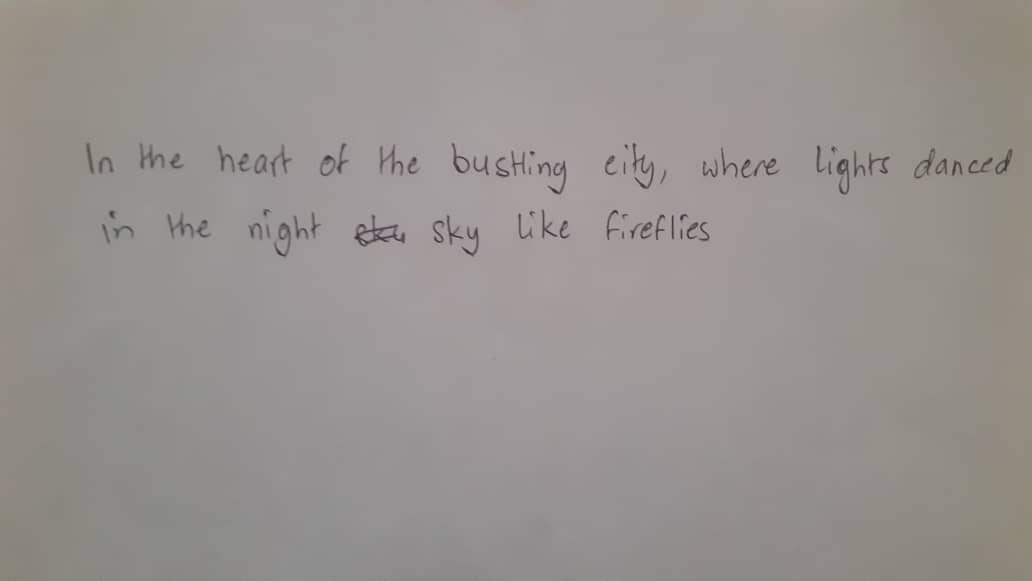 In the heart of the bustling city, where lights danced
in the night sky like fireflies